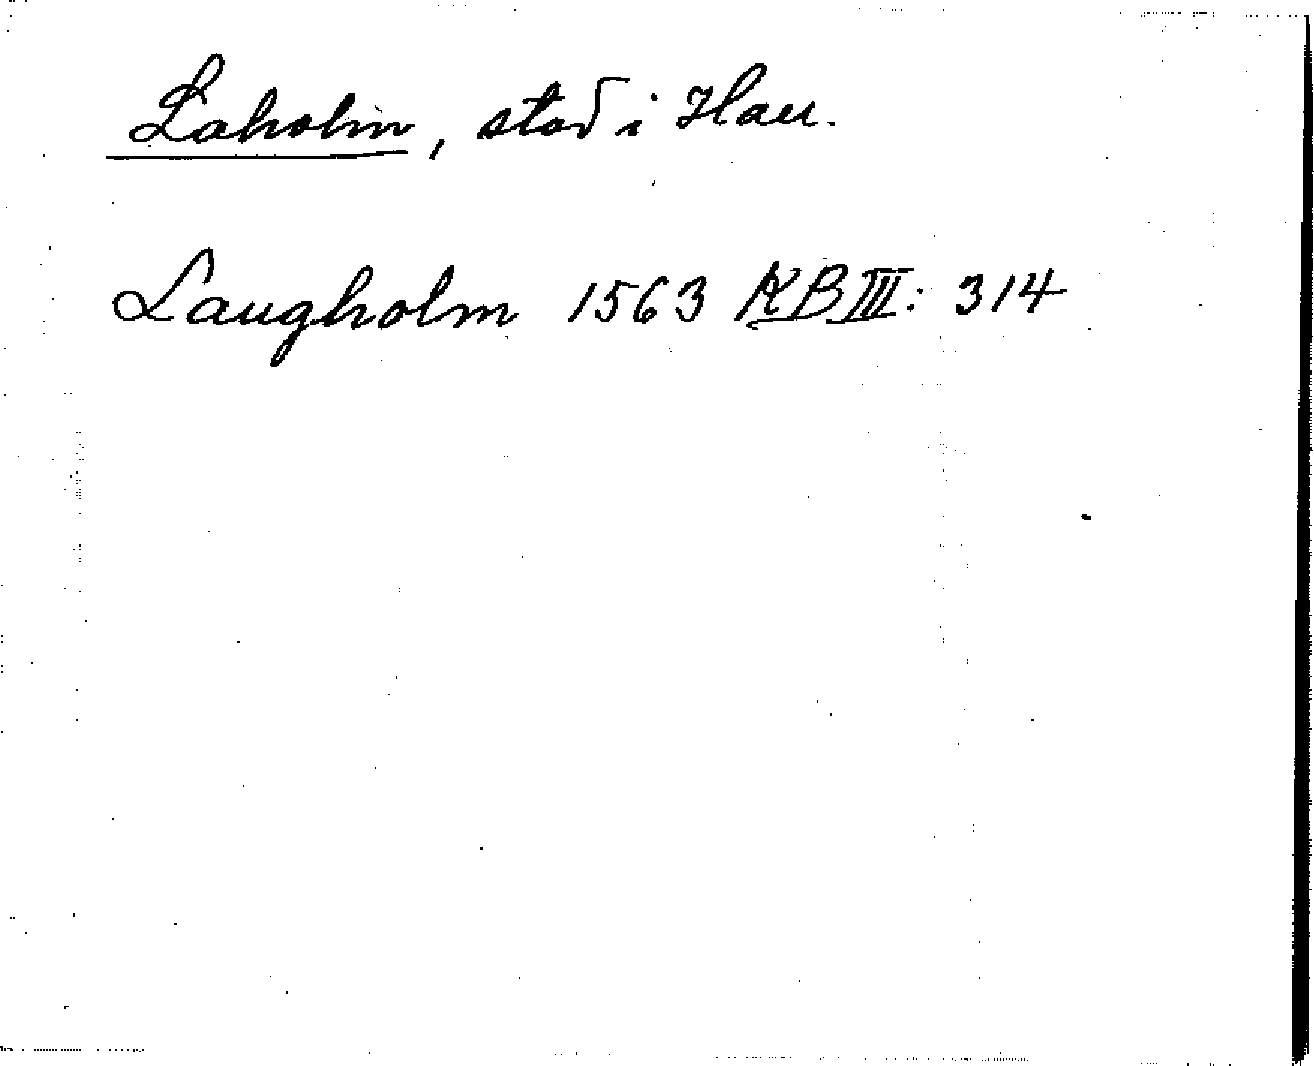 Laholm, stad i Hall.
Laugholm 1563 KB III: 314